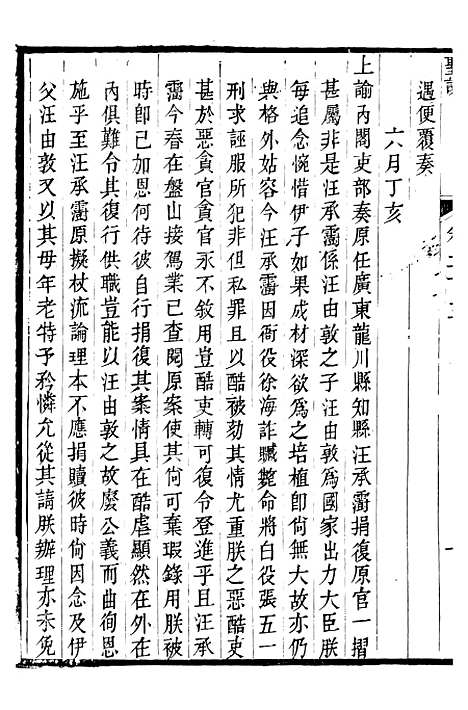 聖訓
遇便覆奏
六月丁亥
上諭內閣吏部奏原任廣東龍川縣知縣汪承霌捐復原官一摺
甚屬非是汪承霌係汪由敦之子汪由敦爲國家出力大臣朕
每追念惋惜伊子如果成材深欲爲之培植卽尙無大故亦仍
與格外姑容今汪承霌因衙役徐海詐贓斃命將白役張五一
刑求誣服所犯非但私罪且以酷被劾其情尤重朕之惡酷吏
甚於惡貪官貪官永不敘用豈酷吏轉可復令登進乎且汪承
霌今春在盤山接駕業已查閱原案使其尙可棄瑕錄用朕被
時卽已加恩何待彼自行捐復其案情具在酷虐顯然在外在
內俱難令其復行供職豈能以汪由敦之故廢公義而曲徇恩
施乎至汪承霌原擬杖流論理本不應捐贖彼時尙因念及伊
父汪由敦又以其母年老特予矜憐允從其請朕辦理亦未免